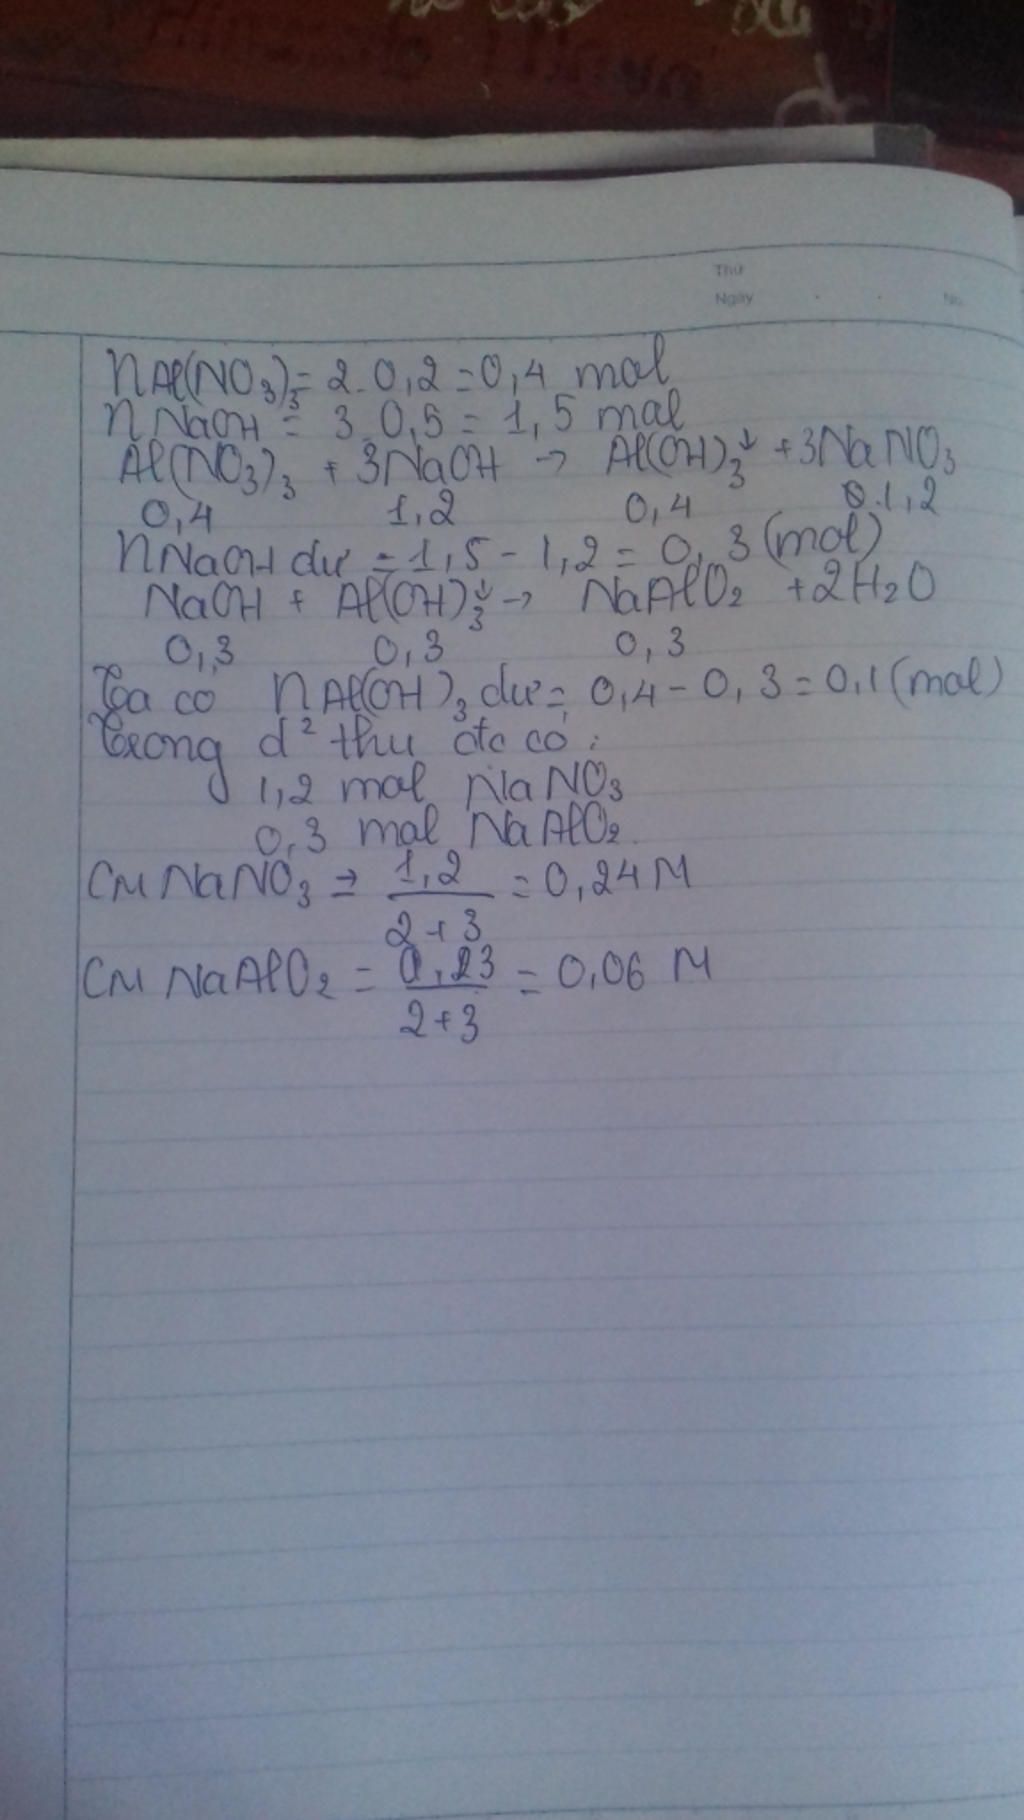 Thứ
Ngày . . No.
nAl(NO3)3 = 2.0,2 = 0,4 mol
nNaOH = 3.0,5 = 1,5 mol
Al(NO3)3 + 3NaOH → Al(OH)3↓ + 3NaNO3
0,4 1,2 0,4 1,2
nNaOH dư = 1,5 - 1,2 = 0,3 (mol)
NaOH + Al(OH)3↓ → NaAlO2 + 2H2O
0,3 0,3 0,3
Ta có nAl(OH)3 dư = 0,4 - 0,3 = 0,1 (mol)
Trong d² thu đc có :
1,2 mol NaNO3
0,3 mol NaAlO2.
CM NaNO3 = 1,2 / 2+3 = 0,24 M
CM NaAlO2 = 0,3 / 2+3 = 0,06 M